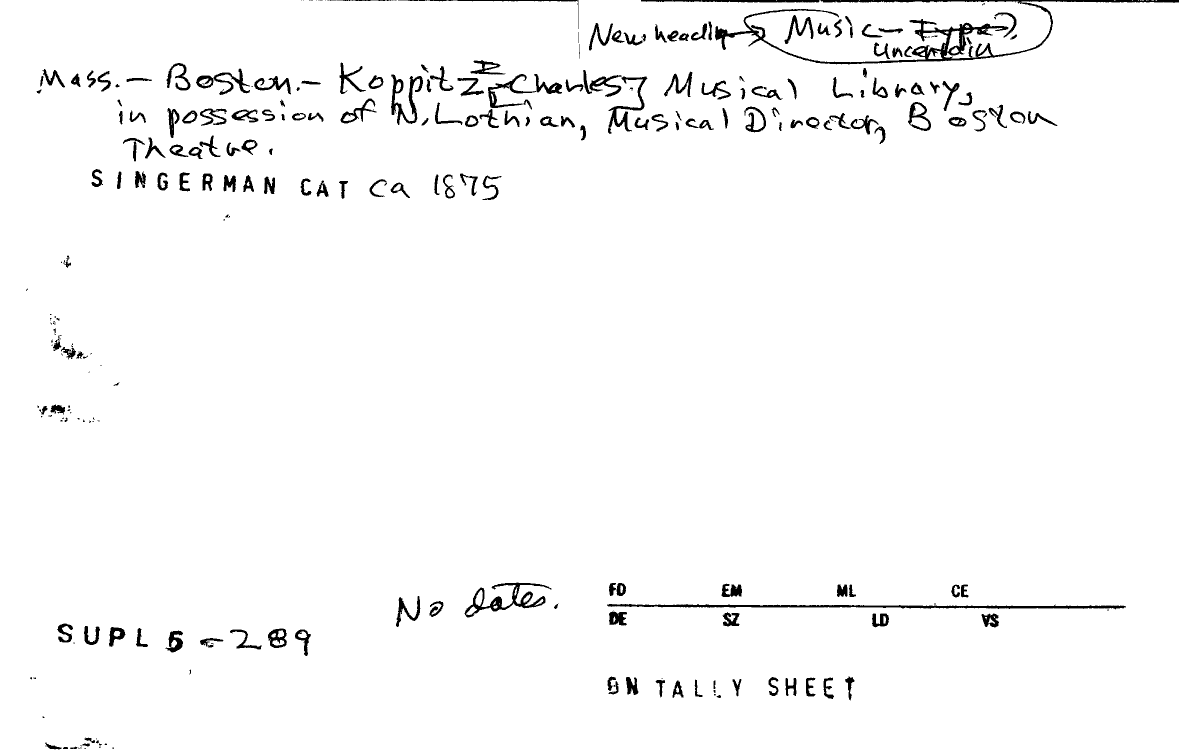 New heading → Music - Type?
uncertain
Mass. - Boston. - Koppitz [Charles] Musical Library,
in possession of N. Lothian, Musical Director, Boston
Theatre.
SINGERMAN CAT ca 1875
No dates.
FD EM ML CE
DE SZ LD VS
SUPL 5 - 289
ON TALLY SHEET